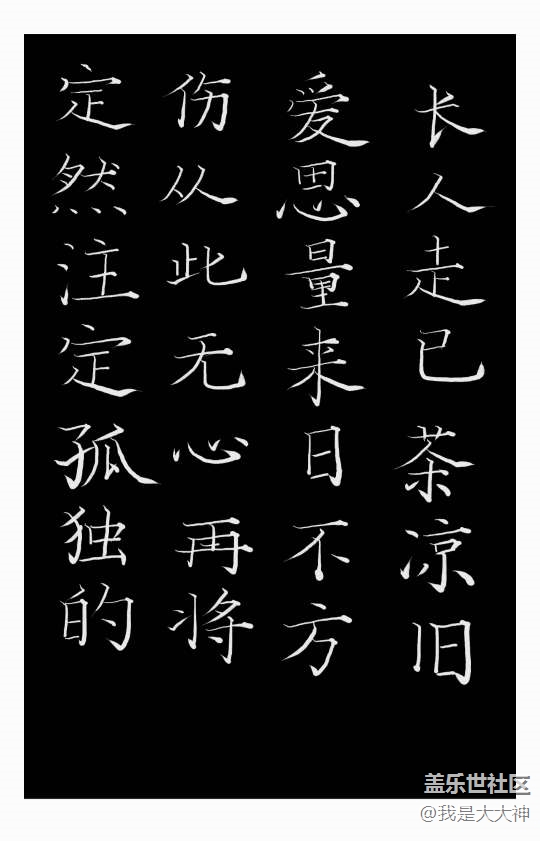 长人走已茶凉旧
爱思量来日不方
伤从此无心再将
定然注定孤独的
盖乐世社区
@我是大大神